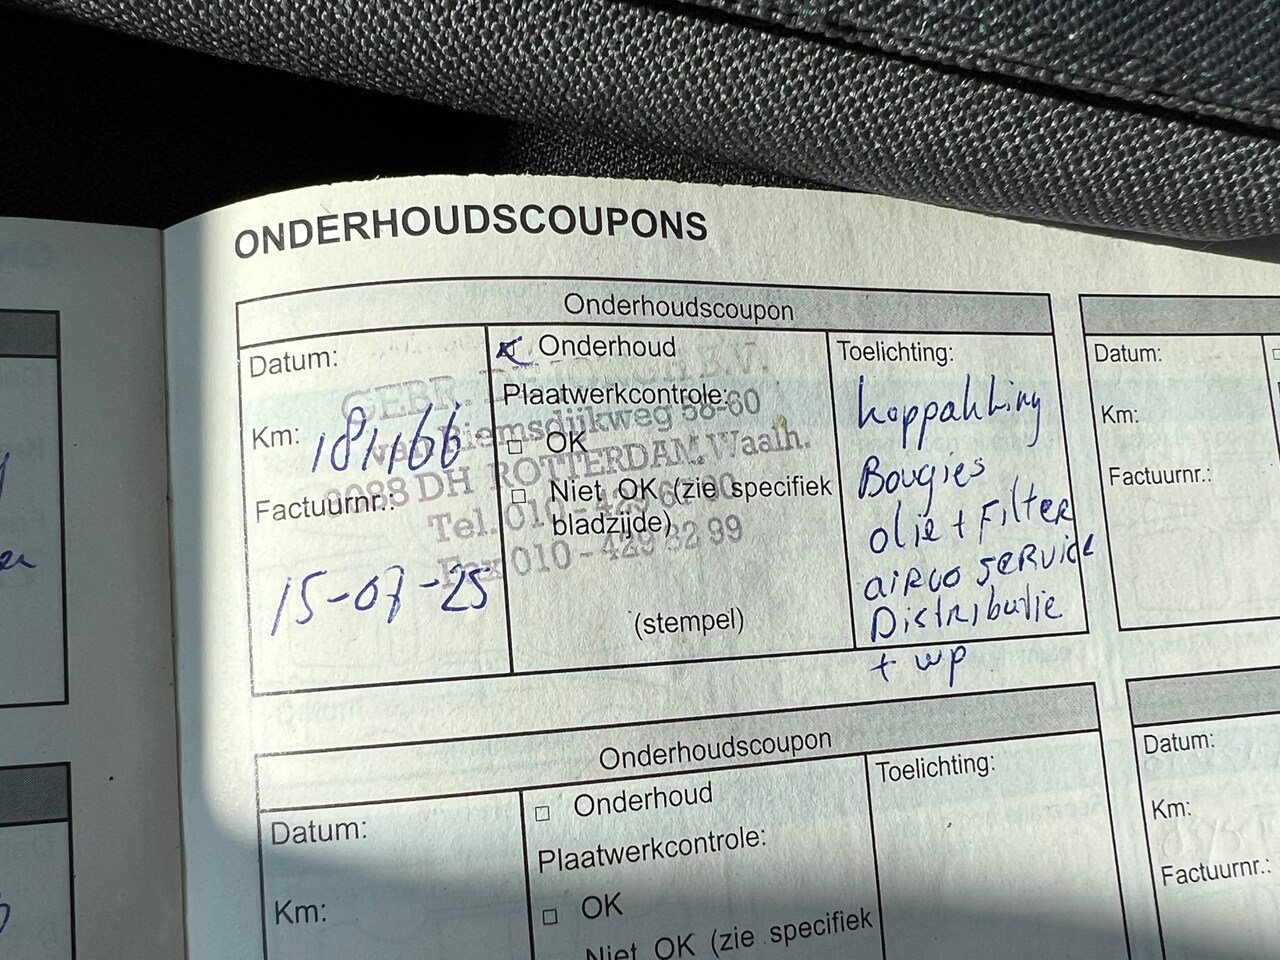 ONDERHOUDSCOUPONS
Onderhoudscoupon
Datum:
Km: 181166
Factuurnr.:
15-07-25
Onderhoud
Plaatwerkcontrole:
OK
Niet OK (zie specifiek
bladzijde)
(stempel)
GEBR. B.V.
van Riemsdijkweg 58-60
3088 DH ROTTERDAM Waalh.
Tel. 010 - 429
Fax 010 - 429 32 99
Toelichting:
koppakking
Bougies
olie + Filter
aiRCo seRvice
Distributie
+ wp
Datum:
Km:
Factuurnr.:
Onderhoudscoupon
Datum:
Km:
Onderhoud
Plaatwerkcontrole:
OK
Niet OK (zie specifiek
Toelichting:
Datum:
Km:
Factuurnr.: